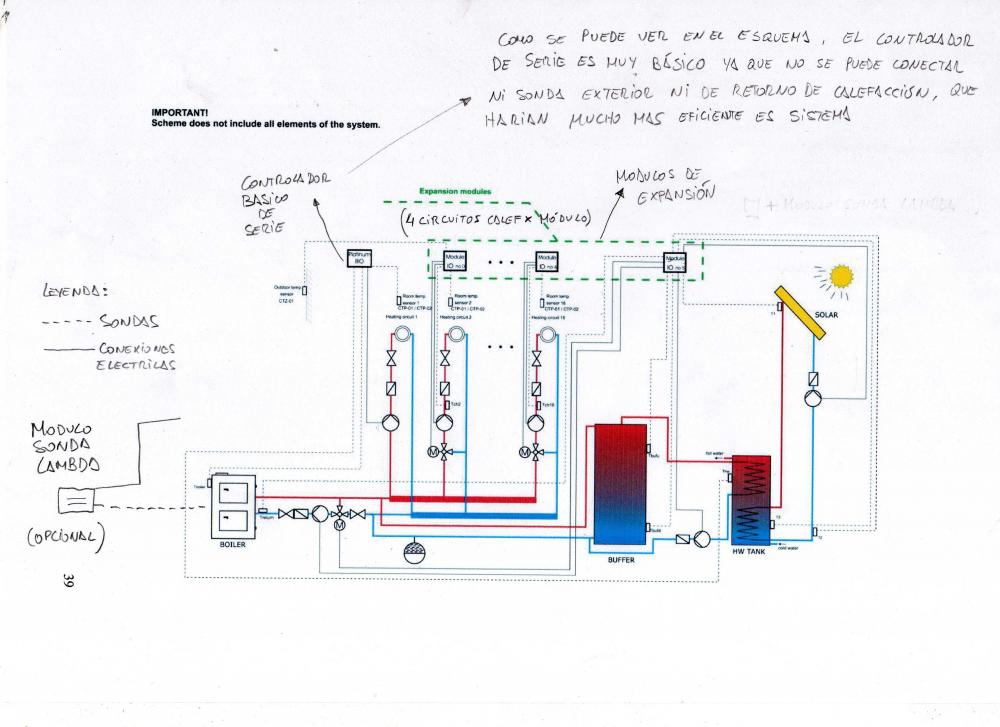 COMO SE PUEDE VER EN EL ESQUEMA, EL CONTROLADOR
DE SERIE ES MUY BÁSICO YA QUE NO SE PUEDE CONECTAR
NI SONDA EXTERIOR NI DE RETORNO DE CALEFACCIÓN, QUE
HARIAN MUCHO MAS EFICIENTE ES SISTEMA
IMPORTANT!
Scheme does not include all elements of the system.
CONTROLADOR
BASICO
DE
SERIE
Expansion modules
MODULOS DE
EXPANSIÓN
(4 CIRCUITOS CALEF X MÓDULO)
Platinum
BIO
Module
IO no
Module
IO no
Module
IO no
Outdoor temp
sensor
CTZ-01
Room temp.
sensor 1
CTP-01 / CTP-02
Heating circuit 1
Room temp.
sensor 2
CTP-01 / CTP-02
Heating circuit 2
Room temp.
sensor 16
CTP-01 / CTP-02
Heating circuit 16
SOLAR
LEYENDA:
SONDAS
CONEXIONES
ELECTRICAS
Tch2
Tch16
M
M
MODULO
SONDA
LAMBDA
(OPCIONAL)
hot water
Treturn
M
BOILER
BUFFER
HW TANK
cold water
T2
39